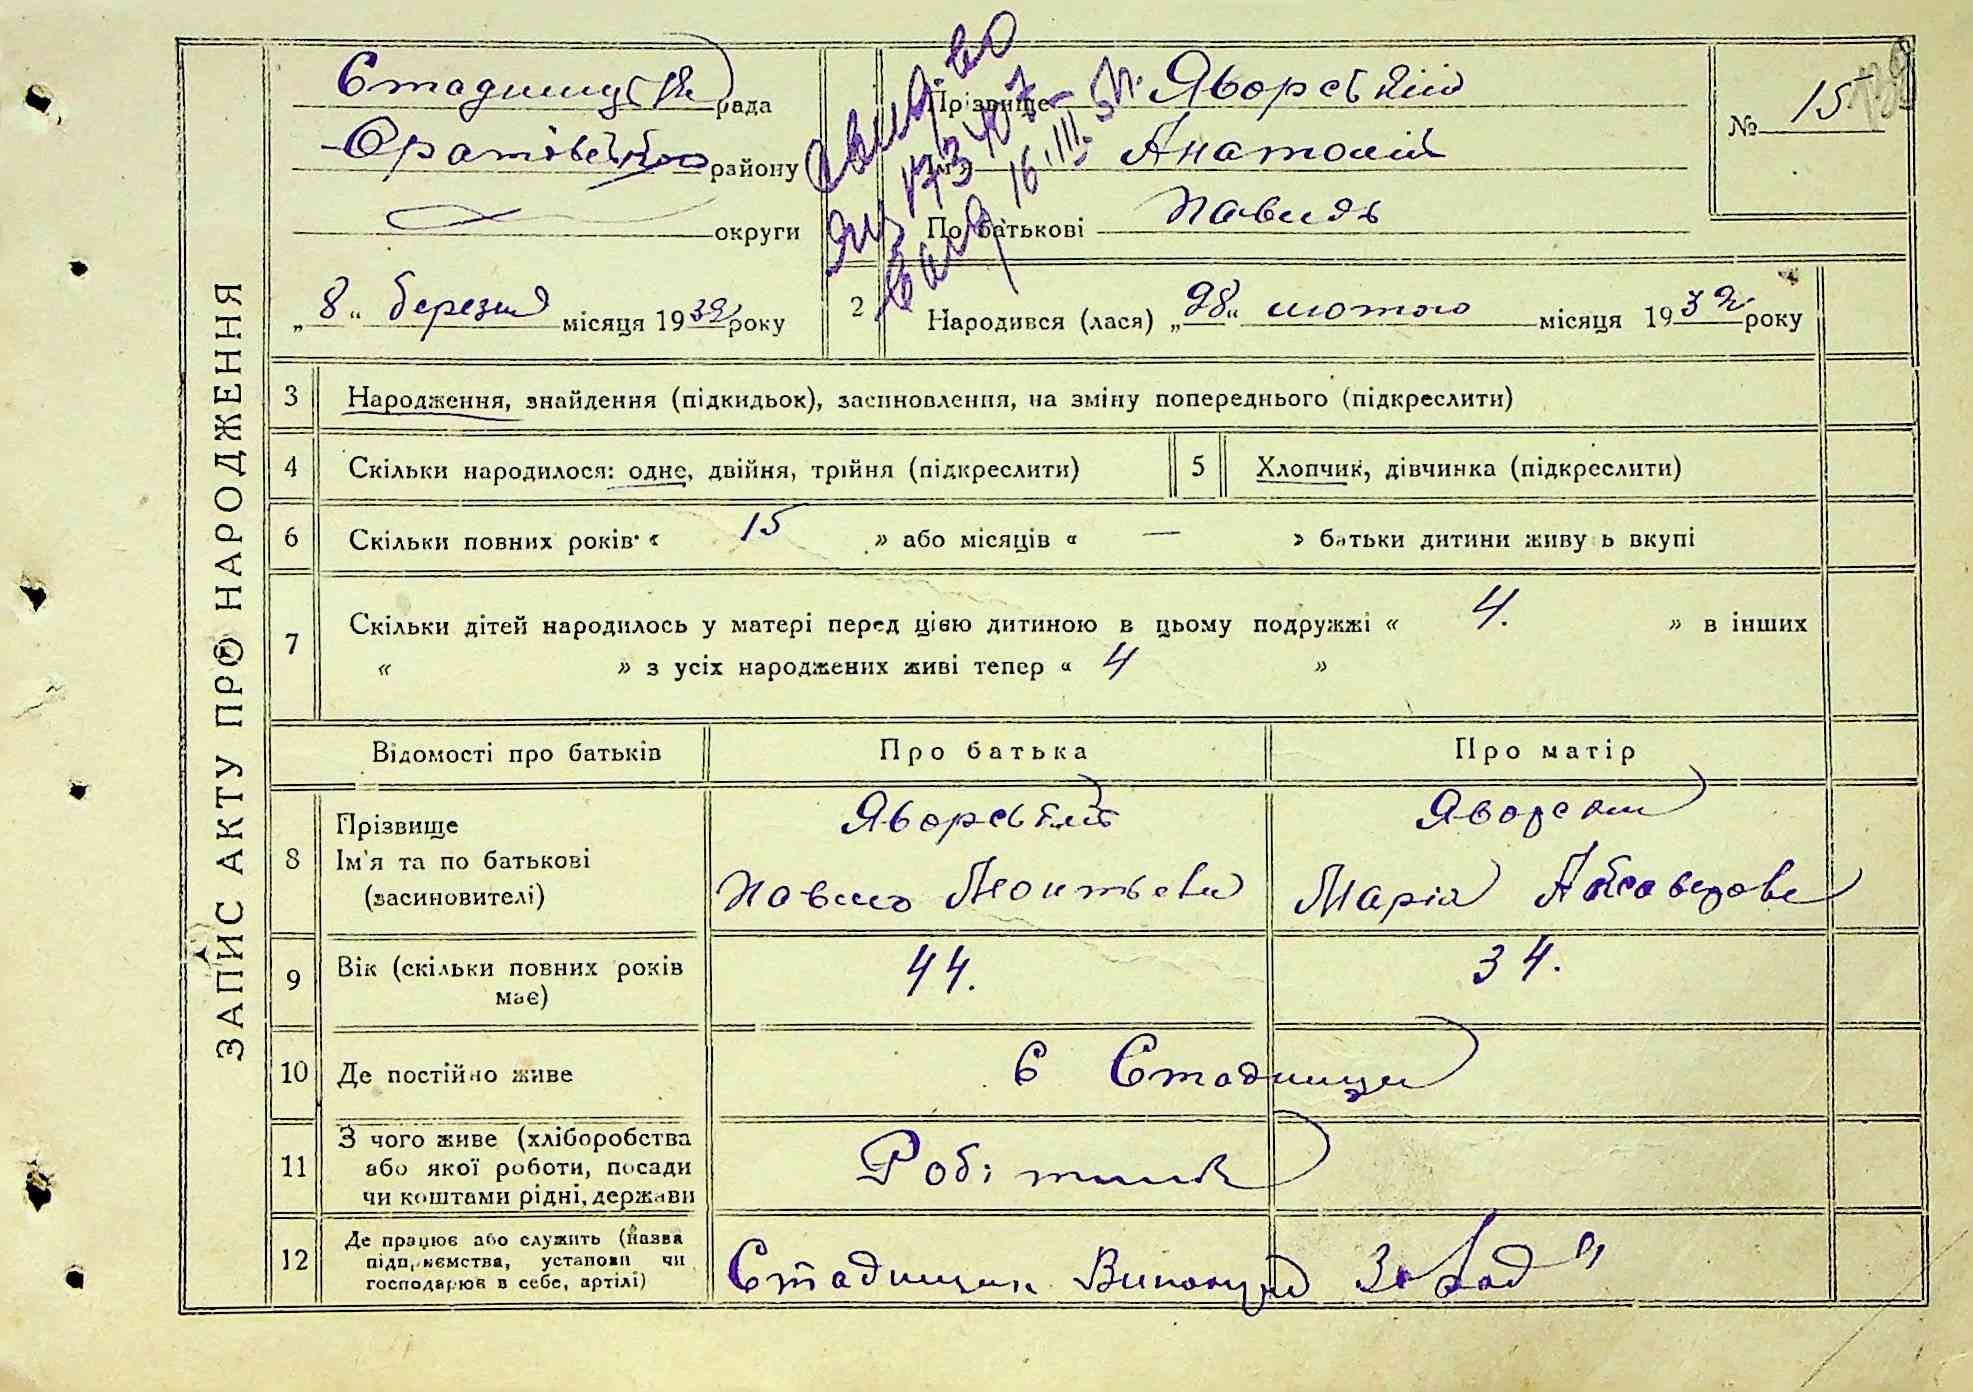 ЗАПИС АКТУ ПРО НАРОДЖЕННЯ
Стадницька рада
Оратівського району
округи
„8“ березня місяця 1932 року
Прізвище Яворський
Ім'я Анатолій
По батькові Павлов
№ 15
139
Свид-во
ЯЦ 173407
16.III.51.
2 Народився (лася) „28“ лютого місяця 1932 року
3 Народження, знайдення (підкидьок), засиновлення, на зміну попереднього (підкреслити)
4 Скільки народилося: одне, двійня, трійня (підкреслити)
5 Хлопчик, дівчинка (підкреслити)
6 Скільки повних років « 15 » або місяців « — » батьки дитини живуть вкупі
7 Скільки дітей народилось у матері перед цією дитиною в цьому подружжі « 4. » в інших
« » з усіх народжених живі тепер « 4 »
Відомості про батьків Про батька Про матір
8 Прізвище Яворський Яворська
Ім'я та по батькові Павло Леонтьєв Марія
(засиновителі)
9 Вік (скільки повних років має) 44. 34.
10 Де постійно живе С Стадниця
11 З чого живе (хліборобства
або якої роботи, посади
чи коштами рідні, держави Робітник
12 Де працює або служить (назва
підприємства, установи чи
господарює в себе, артілі) Стадницьк Винокур Завод